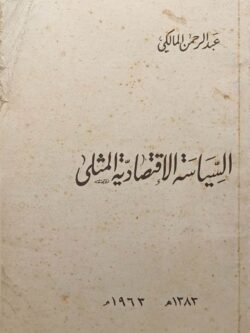 عبد الرحمن المالكي
السياسة الإقتصادية المثلى
١٣٨٣هـ ١٩٦٣م